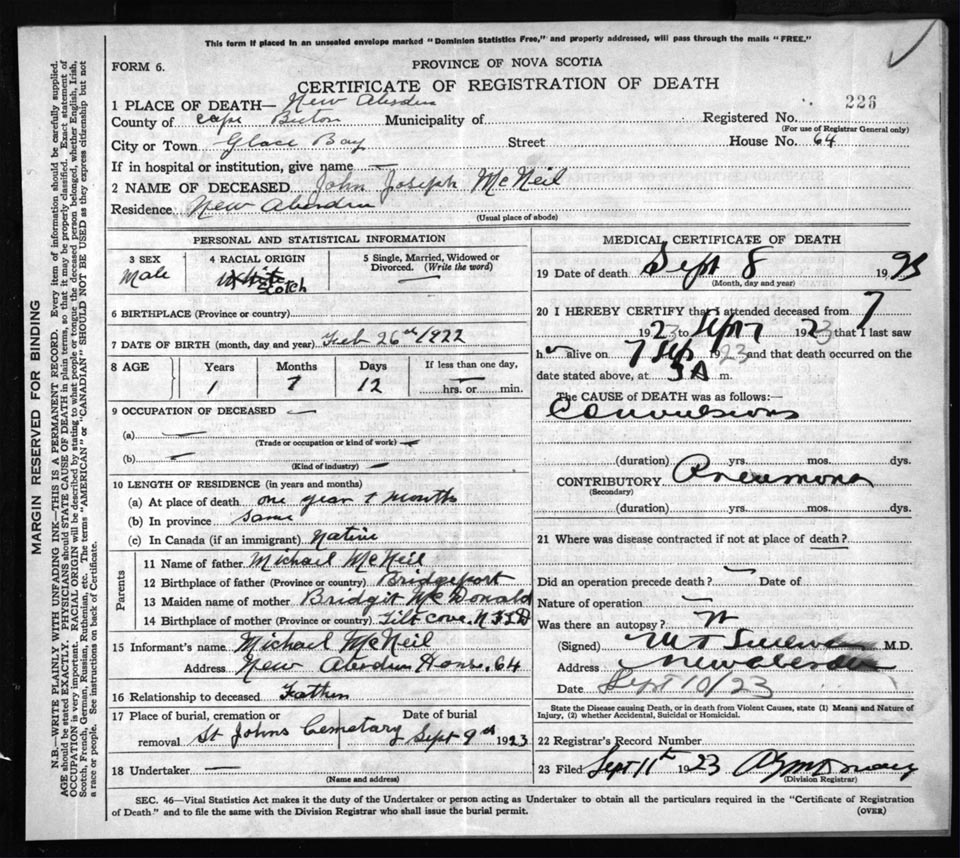 This form if placed in an unsealed envelope marked "Dominion Statistics Free," and properly addressed, will pass through the mails "FREE."
FORM 6.
PROVINCE OF NOVA SCOTIA
CERTIFICATE OF REGISTRATION OF DEATH
1 PLACE OF DEATH— New Aberdeen
226
County of Cape Breton Municipality of Registered No.
(For use of Registrar General only)
City or Town Glace Bay Street House No. 64
If in hospital or institution, give name —
2 NAME OF DECEASED John Joseph McNeil
Residence New Aberdeen
(Usual place of abode)
PERSONAL AND STATISTICAL INFORMATION
3 SEX
Male
4 RACIAL ORIGIN
White
Scotch
5 Single, Married, Widowed or Divorced. (Write the word)
—
6 BIRTHPLACE (Province or country)
7 DATE OF BIRTH (month, day and year) Feb 26th/1922
8 AGE Years Months Days If less than one day,
1 7 12 — hrs. or min.
9 OCCUPATION OF DECEASED —
(a) —
(Trade or occupation or kind of work) —
(b) —
(Kind of industry) —
10 LENGTH OF RESIDENCE (in years and months)
(a) At place of death one year 7 months
(b) In province Same
(c) In Canada (if an immigrant) Native
Parents
11 Name of father Michael McNeil
12 Birthplace of father (Province or country) Bridgeport
13 Maiden name of mother Bridgit McDonald
14 Birthplace of mother (Province or country) Tilt Cove, NFLD
15 Informant's name Michael McNeil
Address New Aberdeen House. 64
16 Relationship to deceased Father
17 Place of burial, cremation or Date of burial
removal St Johns Cemetary Sept 9th 1923
18 Undertaker —
(Name and address)
MEDICAL CERTIFICATE OF DEATH
19 Date of death Sept 8 1923
(Month, day and year)
20 I HEREBY CERTIFY that I attended deceased from 7
1923 to Sept 7 1923 that I last saw
h alive on 7 Sep 1923 and that death occurred on the
date stated above, at 3 A m.
The CAUSE of DEATH was as follows:—
Convulsions
(duration) yrs. mos. dys.
CONTRIBUTORY Pneumona
(Secondary)
(duration) yrs. mos. dys.
21 Where was disease contracted if not at place of death?
Did an operation precede death? Date of
Nature of operation
Was there an autopsy?
(Signed) M.D.
Address New Aberdeen
Date Sept 10/23
State the Disease causing Death, or in death from Violent Causes, state (1) Means and Nature of Injury, (2) whether Accidental, Suicidal or Homicidal.
22 Registrar's Record Number
23 Filed Sept 11th 1923
(Division Registrar)
SEC. 46—Vital Statistics Act makes it the duty of the Undertaker or person acting as Undertaker to obtain all the particulars required in the "Certificate of Registration
of Death" and to file the same with the Division Registrar who shall issue the burial permit.
(OVER)
MARGIN RESERVED FOR BINDING
N.B.—WRITE PLAINLY WITH UNFADING INK—THIS IS A PERMANENT RECORD. Every item of information should be carefully supplied.
AGE should be stated EXACTLY. PHYSICIANS should STATE CAUSE OF DEATH in plain terms, so that it may be properly classified. Exact statement of
OCCUPATION is very important. RACIAL ORIGIN will be described by stating to what people or tongue the deceased person belonged, whether English, Irish,
Scotch, French, German, Russian, Ruthenian, etc. The terms "AMERICAN" or "CANADIAN" SHOULD NOT BE USED as they express citizenship but not
a race or people. See instructions on back of Certificate.